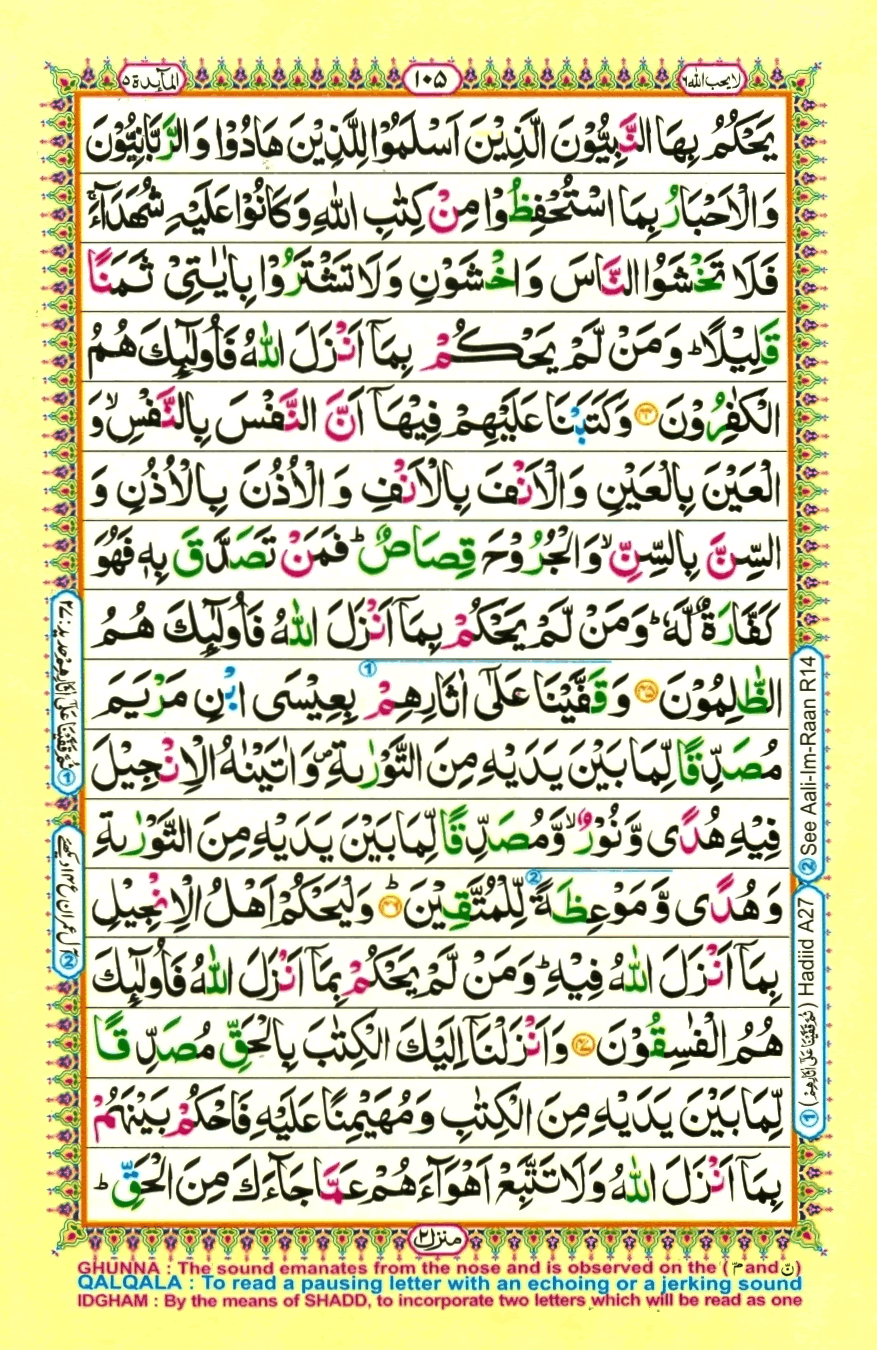 المآئدة ٥
١٠٥
لا يحب الله ٦
يَحْكُمُ بِهَا النَّبِيُّوْنَ الَّذِيْنَ اَسْلَمُوْا لِلَّذِيْنَ هَادُوْا وَالرَّبّٰنِيُّوْنَ
وَالْاَحْبَارُ بِمَا اسْتُحْفِظُوْا مِنْ كِتٰبِ اللّٰهِ وَكَانُوْا عَلَيْهِ شُهَدَآءَ ۚ
فَلَا تَخْشَوُا النَّاسَ وَاخْشَوْنِ وَلَا تَشْتَرُوْا بِاٰيٰتِيْ ثَمَنًا
قَلِيْلًا ؕ وَمَنْ لَّمْ يَحْكُمْ بِمَآ اَنْزَلَ اللّٰهُ فَاُولٰٓئِكَ هُمُ
الْكٰفِرُوْنَ ﴿۴۴﴾ وَكَتَبْنَا عَلَيْهِمْ فِيْهَآ اَنَّ النَّفْسَ بِالنَّفْسِ ۙ وَ
الْعَيْنَ بِالْعَيْنِ وَالْاَنْفَ بِالْاَنْفِ وَالْاُذُنَ بِالْاُذُنِ وَ
السِّنَّ بِالسِّنِّ ۙ وَالْجُرُوْحَ قِصَاصٌ ؕ فَمَنْ تَصَدَّقَ بِهٖ فَهُوَ
كَفَّارَةٌ لَّهٗ ؕ وَمَنْ لَّمْ يَحْكُمْ بِمَآ اَنْزَلَ اللّٰهُ فَاُولٰٓئِكَ هُمُ
الظّٰلِمُوْنَ ﴿۴۵﴾ وَقَفَّيْنَا عَلٰٓى اٰثَارِهِمْ بِعِيْسَى ابْنِ مَرْيَمَ
مُصَدِّقًا لِّمَا بَيْنَ يَدَيْهِ مِنَ التَّوْرٰىةِ ۪ وَاٰتَيْنٰهُ الْاِنْجِيْلَ
فِيْهِ هُدًى وَّنُوْرٌ ۙ وَّمُصَدِّقًا لِّمَا بَيْنَ يَدَيْهِ مِنَ التَّوْرٰىةِ
وَهُدًى وَّمَوْعِظَةً لِّلْمُتَّقِيْنَ ﴿۴۶﴾ ؕ وَلْيَحْكُمْ اَهْلُ الْاِنْجِيْلِ
بِمَآ اَنْزَلَ اللّٰهُ فِيْهِ ؕ وَمَنْ لَّمْ يَحْكُمْ بِمَآ اَنْزَلَ اللّٰهُ فَاُولٰٓئِكَ
هُمُ الْفٰسِقُوْنَ ﴿۴۷﴾ وَاَنْزَلْنَآ اِلَيْكَ الْكِتٰبَ بِالْحَقِّ مُصَدِّقًا
لِّمَا بَيْنَ يَدَيْهِ مِنَ الْكِتٰبِ وَمُهَيْمِنًا عَلَيْهِ فَاحْكُمْ بَيْنَهُمْ
بِمَآ اَنْزَلَ اللّٰهُ وَلَا تَتَّبِعْ اَهْوَآءَهُمْ عَمَّا جَآءَكَ مِنَ الْحَقِّ ؕ
منزل ٢
② See Aali-Im-Raan R14
① (ثُمَّ قَفَّيْنَا عَلٰٓى اٰثَارِهِمْ) Hadiid A27
GHUNNA : The sound emanates from the nose and is observed on the (نّ and مّ)
QALQALA : To read a pausing letter with an echoing or a jerking sound
IDGHAM : By the means of SHADD, to incorporate two letters which will be read as one